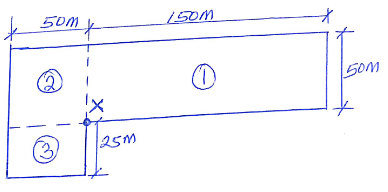 50M
150M
②
①
50M
X
③
25M